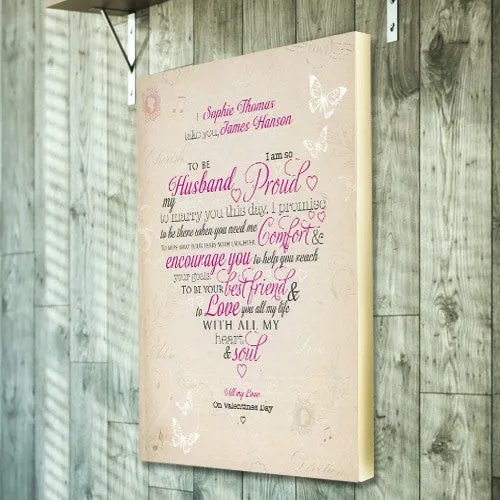 I Sophie Thomas
take you, James Hanson
TO BE I am so
my Husband Proud
to marry you this day. i promise
to be there when you need me Comfort &
TO WIPE AWAY YOUR TEARS WITH LAUGHTER,
encourage you to help you reach
your goals.
TO BE YOUR best friend &
to Love you all my life
WITH ALL MY
heart
& soul
All my Love
On Valentines Day